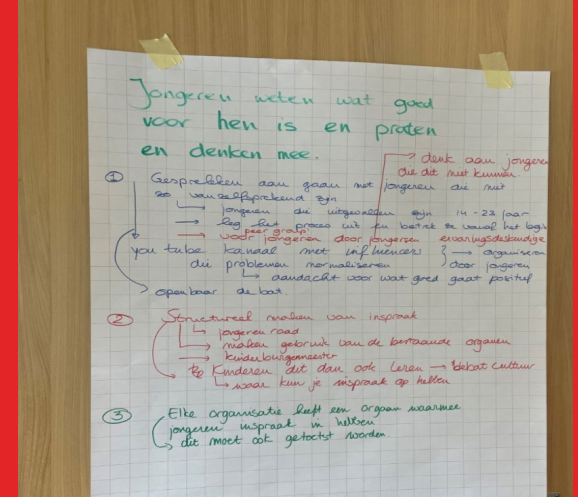 Jongeren weten wat goed
voor hen is en praten
en denken mee.
→ denk aan jongeren
die dit niet kunnen.
① Gesprekken aan gaan met jongeren die niet
zo vanzelfsprekend zijn
→ jongeren die uitgevallen zijn 14-23 jaar
→ leg het proces uit en betrek ze vanaf het begin
peer group!
→ voor jongeren door jongeren ervaringsdeskundige
you tube kanaal met influencers } → organiseren
die problemen normaliseren door jongeren
→ aandacht voor wat goed gaat positief
→ openbaar debat.
② Structureel maken van inspraak
→ jongeren raad
→ maken gebruik van de bestaande organen
→ kinderburgemeester
→ Kinderen dit dan ook leren → debat cultuur
→ waar kun je inspraak op hebben
③ Elke organisatie heeft een orgaan waarmee
jongeren inspraak in hebben
→ dit moet ook getoetst worden